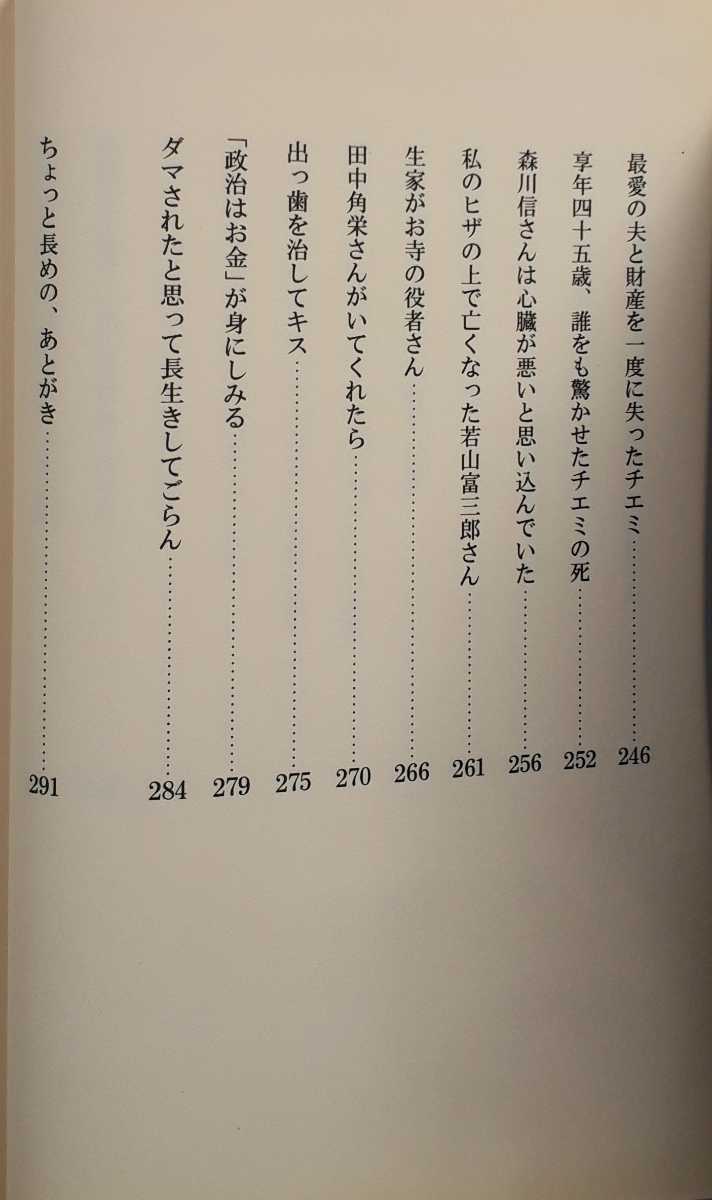 最愛の夫と財産を一度に失ったチエミ……………………246
享年四十五歳、誰をも驚かせたチエミの死……………252
森川信さんは心臓が悪いと思い込んでいた……………256
私のヒザの上で亡くなった若山富三郎さん……………261
生家がお寺の役者さん……………………………………266
田中角栄さんがいてくれたら……………………………270
出っ歯を治してキス………………………………………275
「政治はお金」が身にしみる……………………………279
ダマされたと思って長生きしてごらん…………………284
ちょっと長めの、あとがき………………………………291